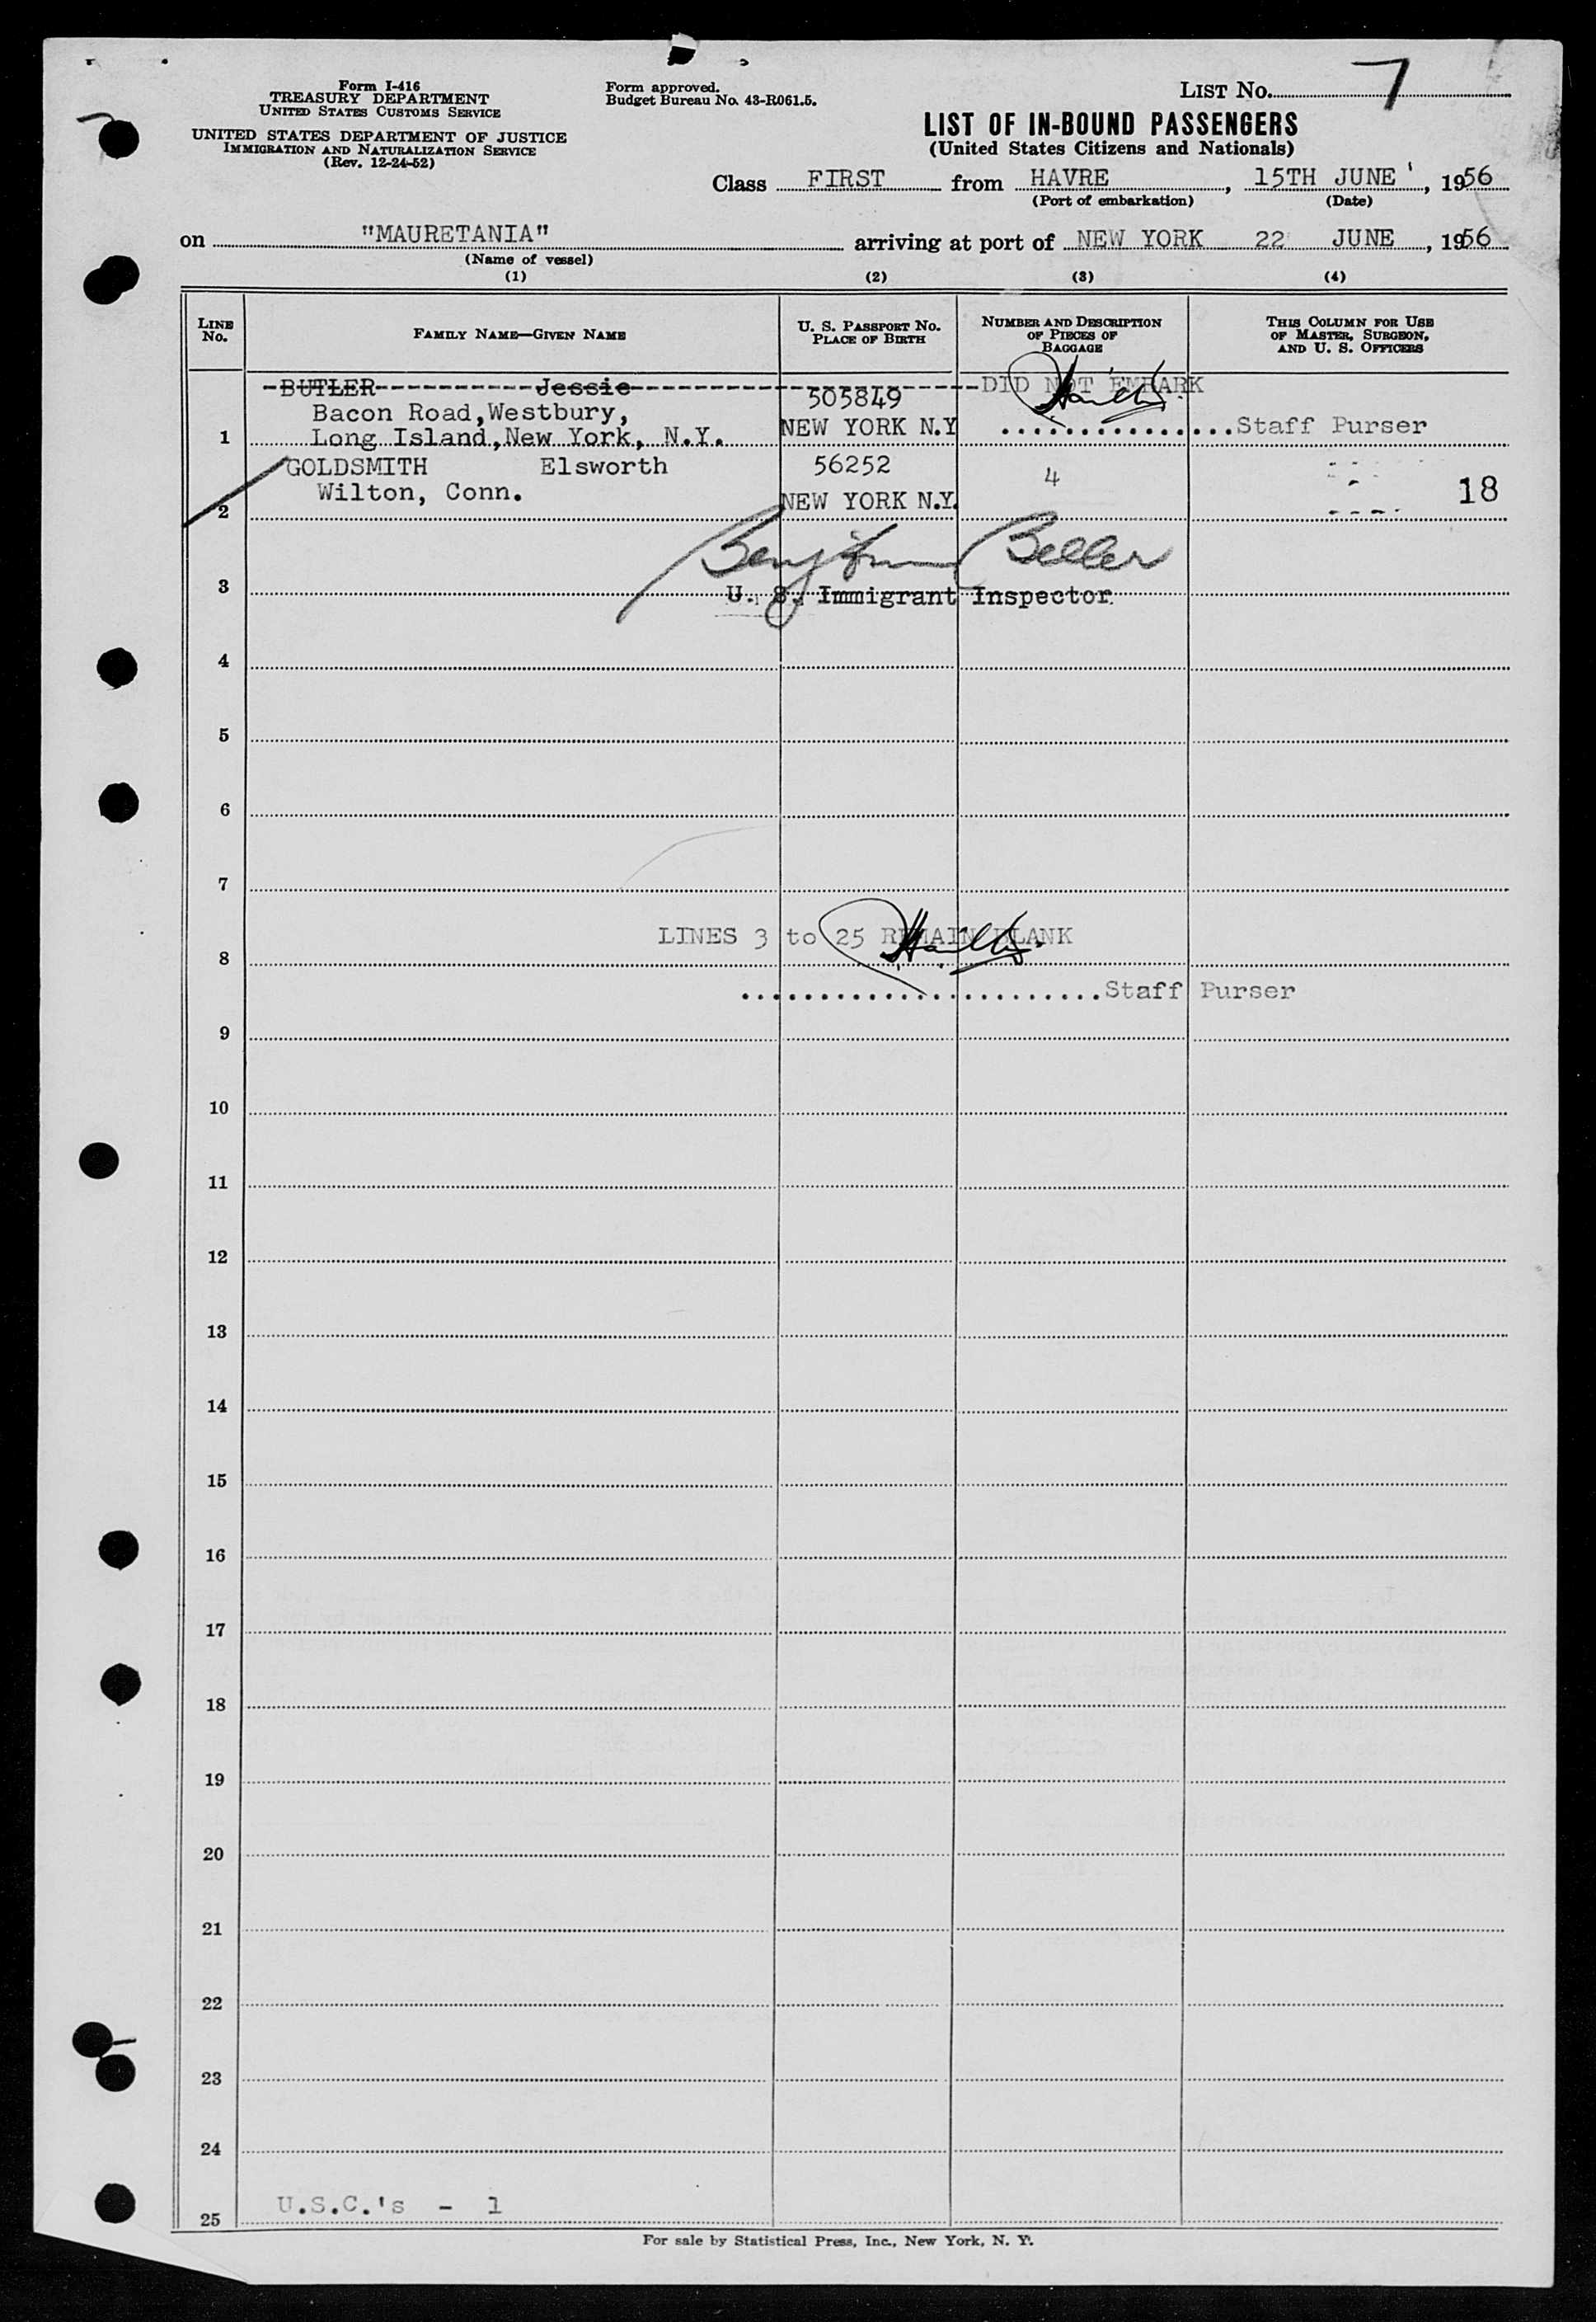 Form I-416
TREASURY DEPARTMENT
UNITED STATES CUSTOMS SERVICE
UNITED STATES DEPARTMENT OF JUSTICE
IMMIGRATION AND NATURALIZATION SERVICE
(Rev. 12-24-52)
Form approved.
Budget Bureau No. 43-R061.5.
LIST No. 7
LIST OF IN-BOUND PASSENGERS
(United States Citizens and Nationals)
Class FIRST from HAVRE, 15TH JUNE, 1956
(Port of embarkation) (Date)
on "MAURETANIA" arriving at port of NEW YORK 22 JUNE, 1956
(Name of vessel)
(1) (2) (3) (4)
LINE No.
FAMILY NAME—GIVEN NAME
U. S. PASSPORT NO.
PLACE OF BIRTH
NUMBER AND DESCRIPTION
OF PIECES OF
BAGGAGE
THIS COLUMN FOR USE
OF MASTER, SURGEON,
AND U. S. OFFICERS
BUTLER Jessie 505849 DID NOT EMBARK
Bacon Road, Westbury,
1 Long Island, New York, N.Y. NEW YORK N.Y Staff Purser
GOLDSMITH Elsworth 56252 4
Wilton, Conn. 18
2 NEW YORK N.Y.
Benjamin Beller
3 U. S. Immigrant Inspector
4
5
6
7
LINES 3 to 25 REMAIN BLANK
8
Staff Purser
9
10
11
12
13
14
15
16
17
18
19
20
21
22
23
24
25 U.S.C.'s - 1
For sale by Statistical Press, Inc., New York, N. Y.